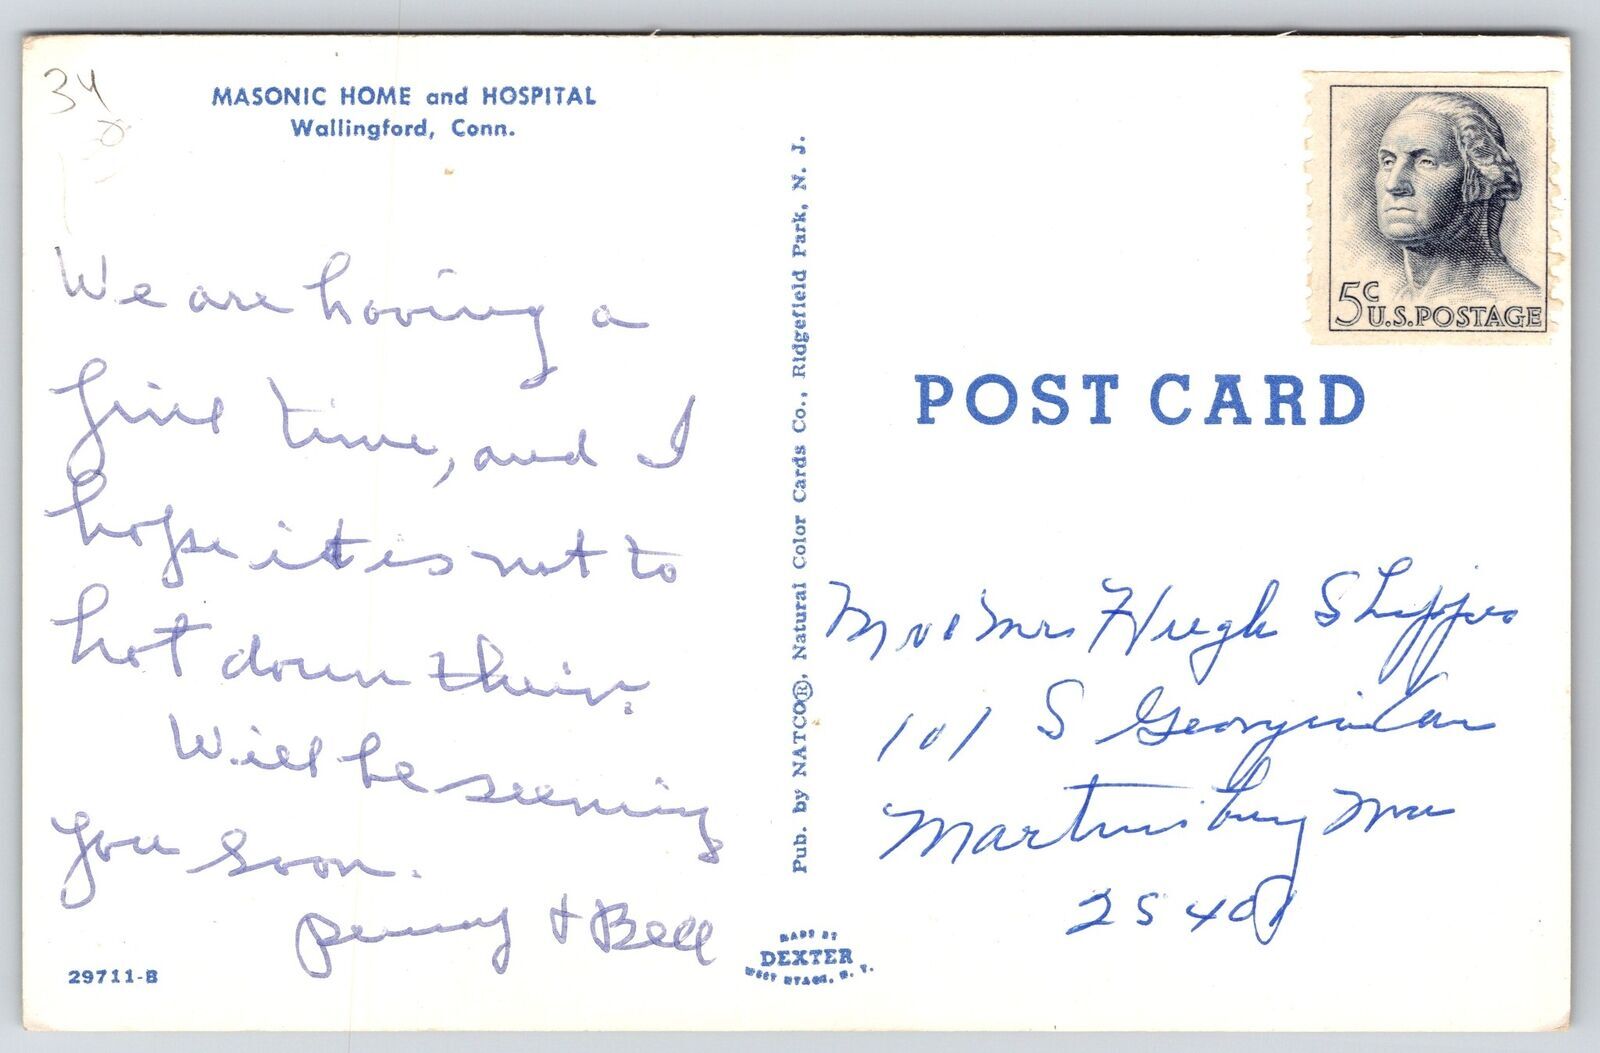 34
MASONIC HOME and HOSPITAL
Wallingford, Conn.
We are having a
fine time, and I
hope it is not to
hot down their.
Will be seeing
you soon.
Penny & Bell
29711-B
Pub. by NATCO®, Natural Color Cards Co., Ridgefield Park, N. J.
MADE BY
DEXTER
WEST NYACK, N. Y.
5c
U.S. POSTAGE
POST CARD
Mr & Mrs Hugh Shipper
101 S Georgia Ave
Martinsburg
25401